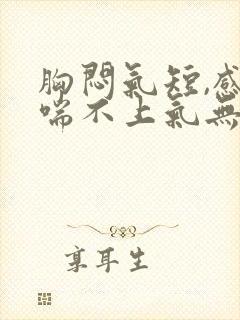 胸悶氣短,感
喘不上氣無
享耳生